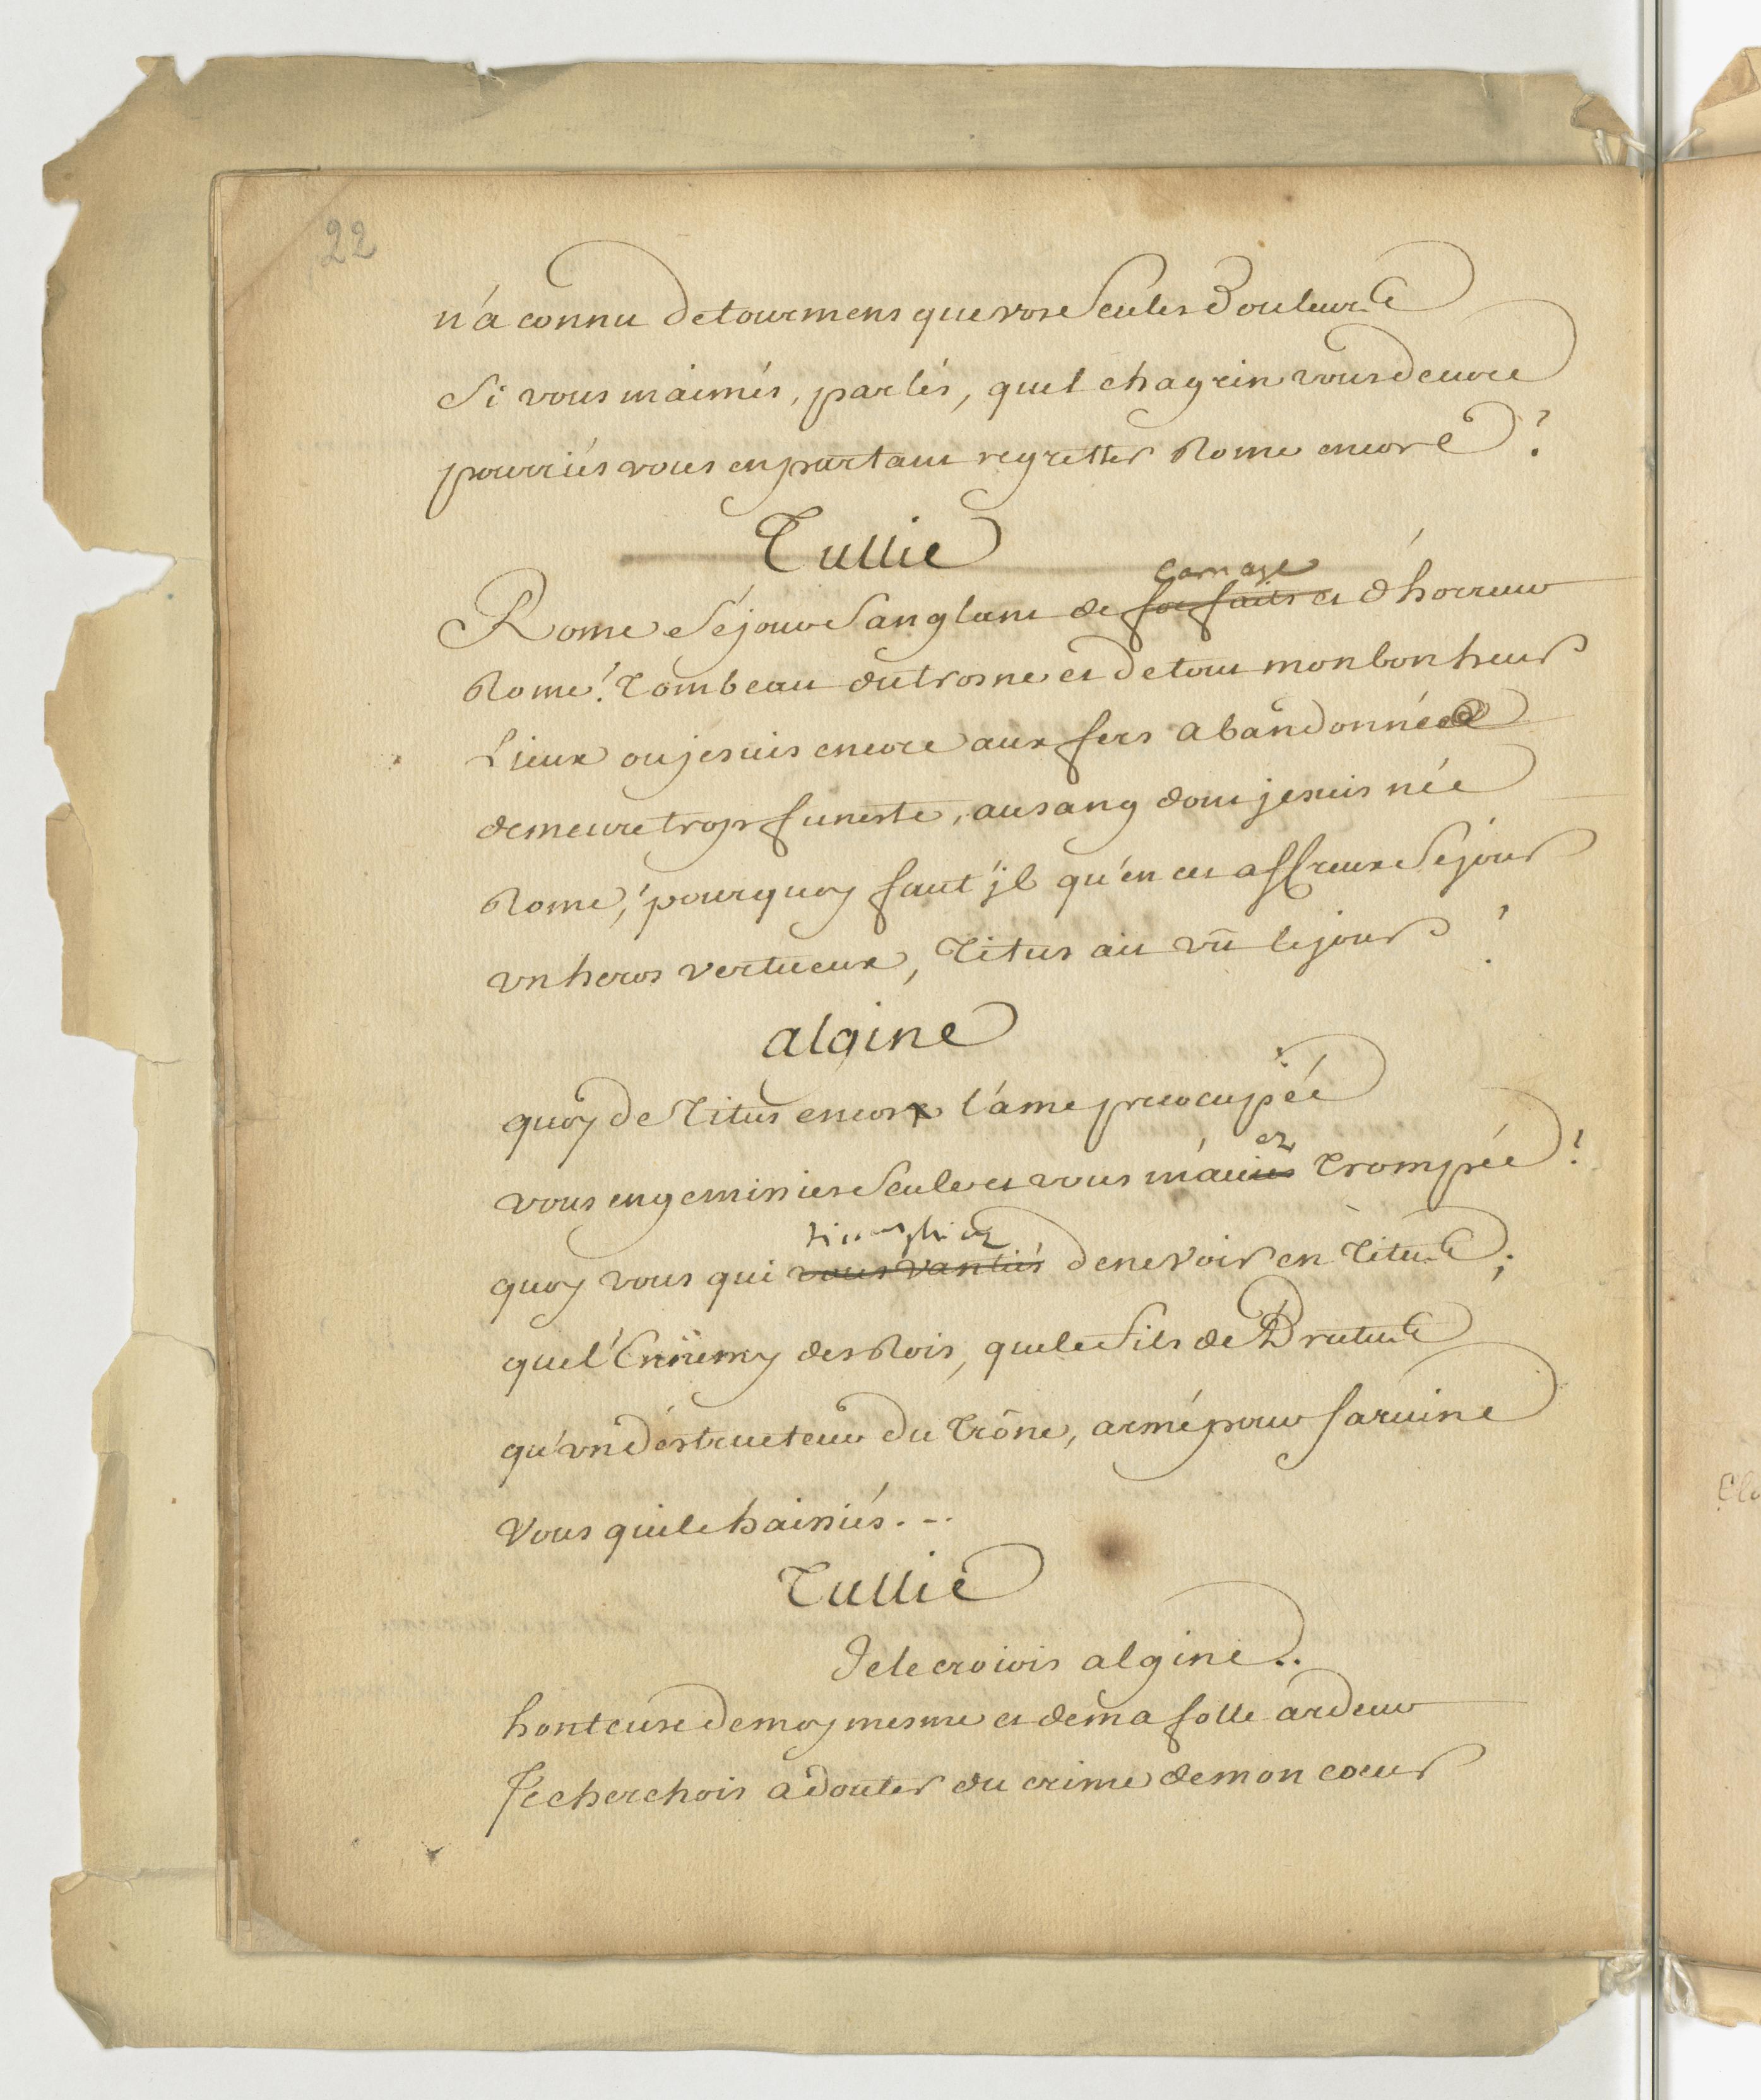 22
n'a connu de tourmens que vos seules douleurs
Si vous m'aimés, parlés, quel chagrin vous devore
pourriés vous en partant regretter Rome encore ?
Tullie
carnage
Rome Séjour Sanglant de forfaits et d'horreur
Rome! Tombeau du trosne et de tout mon bonheur
Lieux ou je suis encore aux fers abandonnée
demeure trop funeste, au sang dont je suis née
Rome,! pourquoy faut'jl qu'en cet affreux Séjour
vn heros vertueux, Titus ait vû le jour ?
algine
quoy de Titus encor l'ame preocupée
ez
vous en gemissies Seule et vous m'aviés Trompée !
quoy vous qui vous vantiés de ne voir en Titus;
que l'Ennemy des Rois, que le fils de Brutus
qu'vn déstructeur du Trône, armé pour sa ruine
Vous qui le haissiés. --
Tullie
Je le croiois algine..
honteuse de moy mesme et de ma folle ardeur
Je cherchois a douter du crime de mon coeur